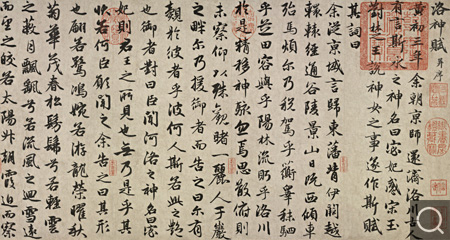 洛神賦 并序
黃初三年余朝京師還濟洛川
有言斯水之神名曰宓妃感宋玉
對楚王說神女之事遂作斯賦
其詞曰
余從京域言歸東藩背伊闕越
轘轅經通谷陵景山日既西傾車
殆馬煩尔乃稅駕乎蘅皋秣駟
乎芝田容與乎陽林流眄乎洛川
於是精移神駭忽焉思散俯則
未察仰以殊觀睹一麗人于巖
之畔尔乃援御者而告之曰尔有
覿於彼者乎彼何人斯若此之艷
也御者對曰臣聞河洛之神名曰宓
妃則君王之所見也無乃是乎其
狀若何臣願聞之余告之曰其形
也翩若驚鴻婉若游龍榮曜秋
菊華茂春松髣髴兮若輕雲
之蔽月飄飖兮若流風之迴雪遠
而望之皎若太陽升朝霞迫而察